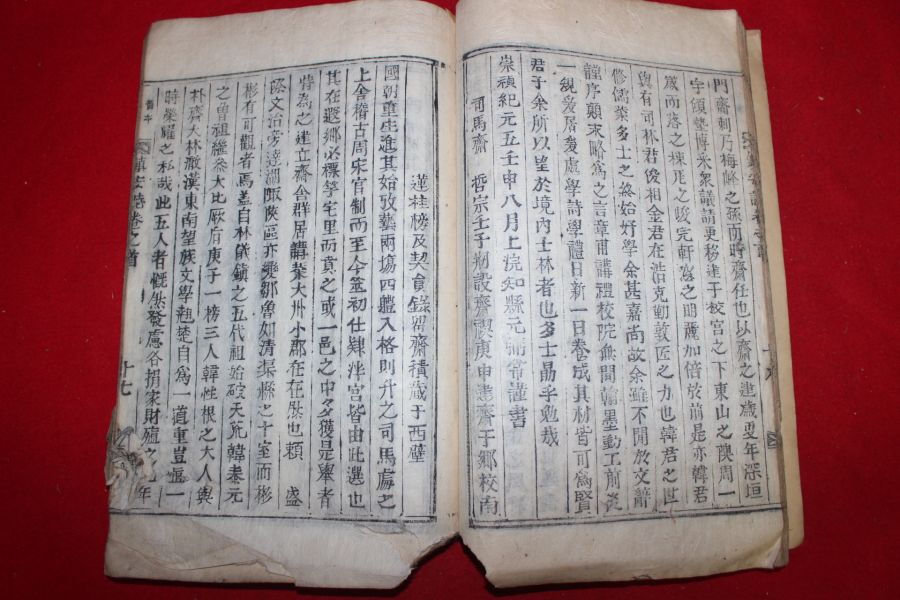 門齋刺乃梅峰之孫而時齋任也以齋之建歲更年深垣
宇頹墊博采衆議請更移建于校宮之下東山之隈周一
歲而落之棟厖之峻完軒窓之明麗加倍於前是亦韓君
與有司林君俊相金君在浩克勤敦匠之力也韓君之世
修儒業多士之終始好學余甚嘉尚故余雖不閒於文辭
謹序顚末略爲之言章甫講禮校院無間翰墨動工前後
一視爰居爰處學詩學禮日新一日養成其材皆可爲賢
君子余所以望於境內士林者也多士勗乎勉哉
崇禎紀元五壬申八月上浣知縣元常謹書
司馬齋 哲宗壬子刱設齋禊庚申建齋于鄕校南
蓮桂榜及契員錄留齋積藏于西壁
國朝重生進其始攷藝兩塲四體入格則升之司馬處之
上舍稽古周宋官制而至今筮初仕肄泮宮皆由此選也
其在遐鄕必標竿宅里而賁之或一邑之中多獲是擧者
特爲之建立齋舍群居講業大州小郡在在然也賴 盛
際文治旁達湖陬陝區亦變鄒魯如淸渠縣之十室而彬
彬有可觀者焉葢自林儀鎭之五代祖始破天荒韓泰元
之曾祖繼參大比厥后庚子一榜三人韓性根之大人與
朴齊大林澈漢東南望族文學翹楚自爲一道重豈慍一
時榮耀之私哉此五人者慨然發慮各捐家財殖之九年
鎭安誌卷之首
十七